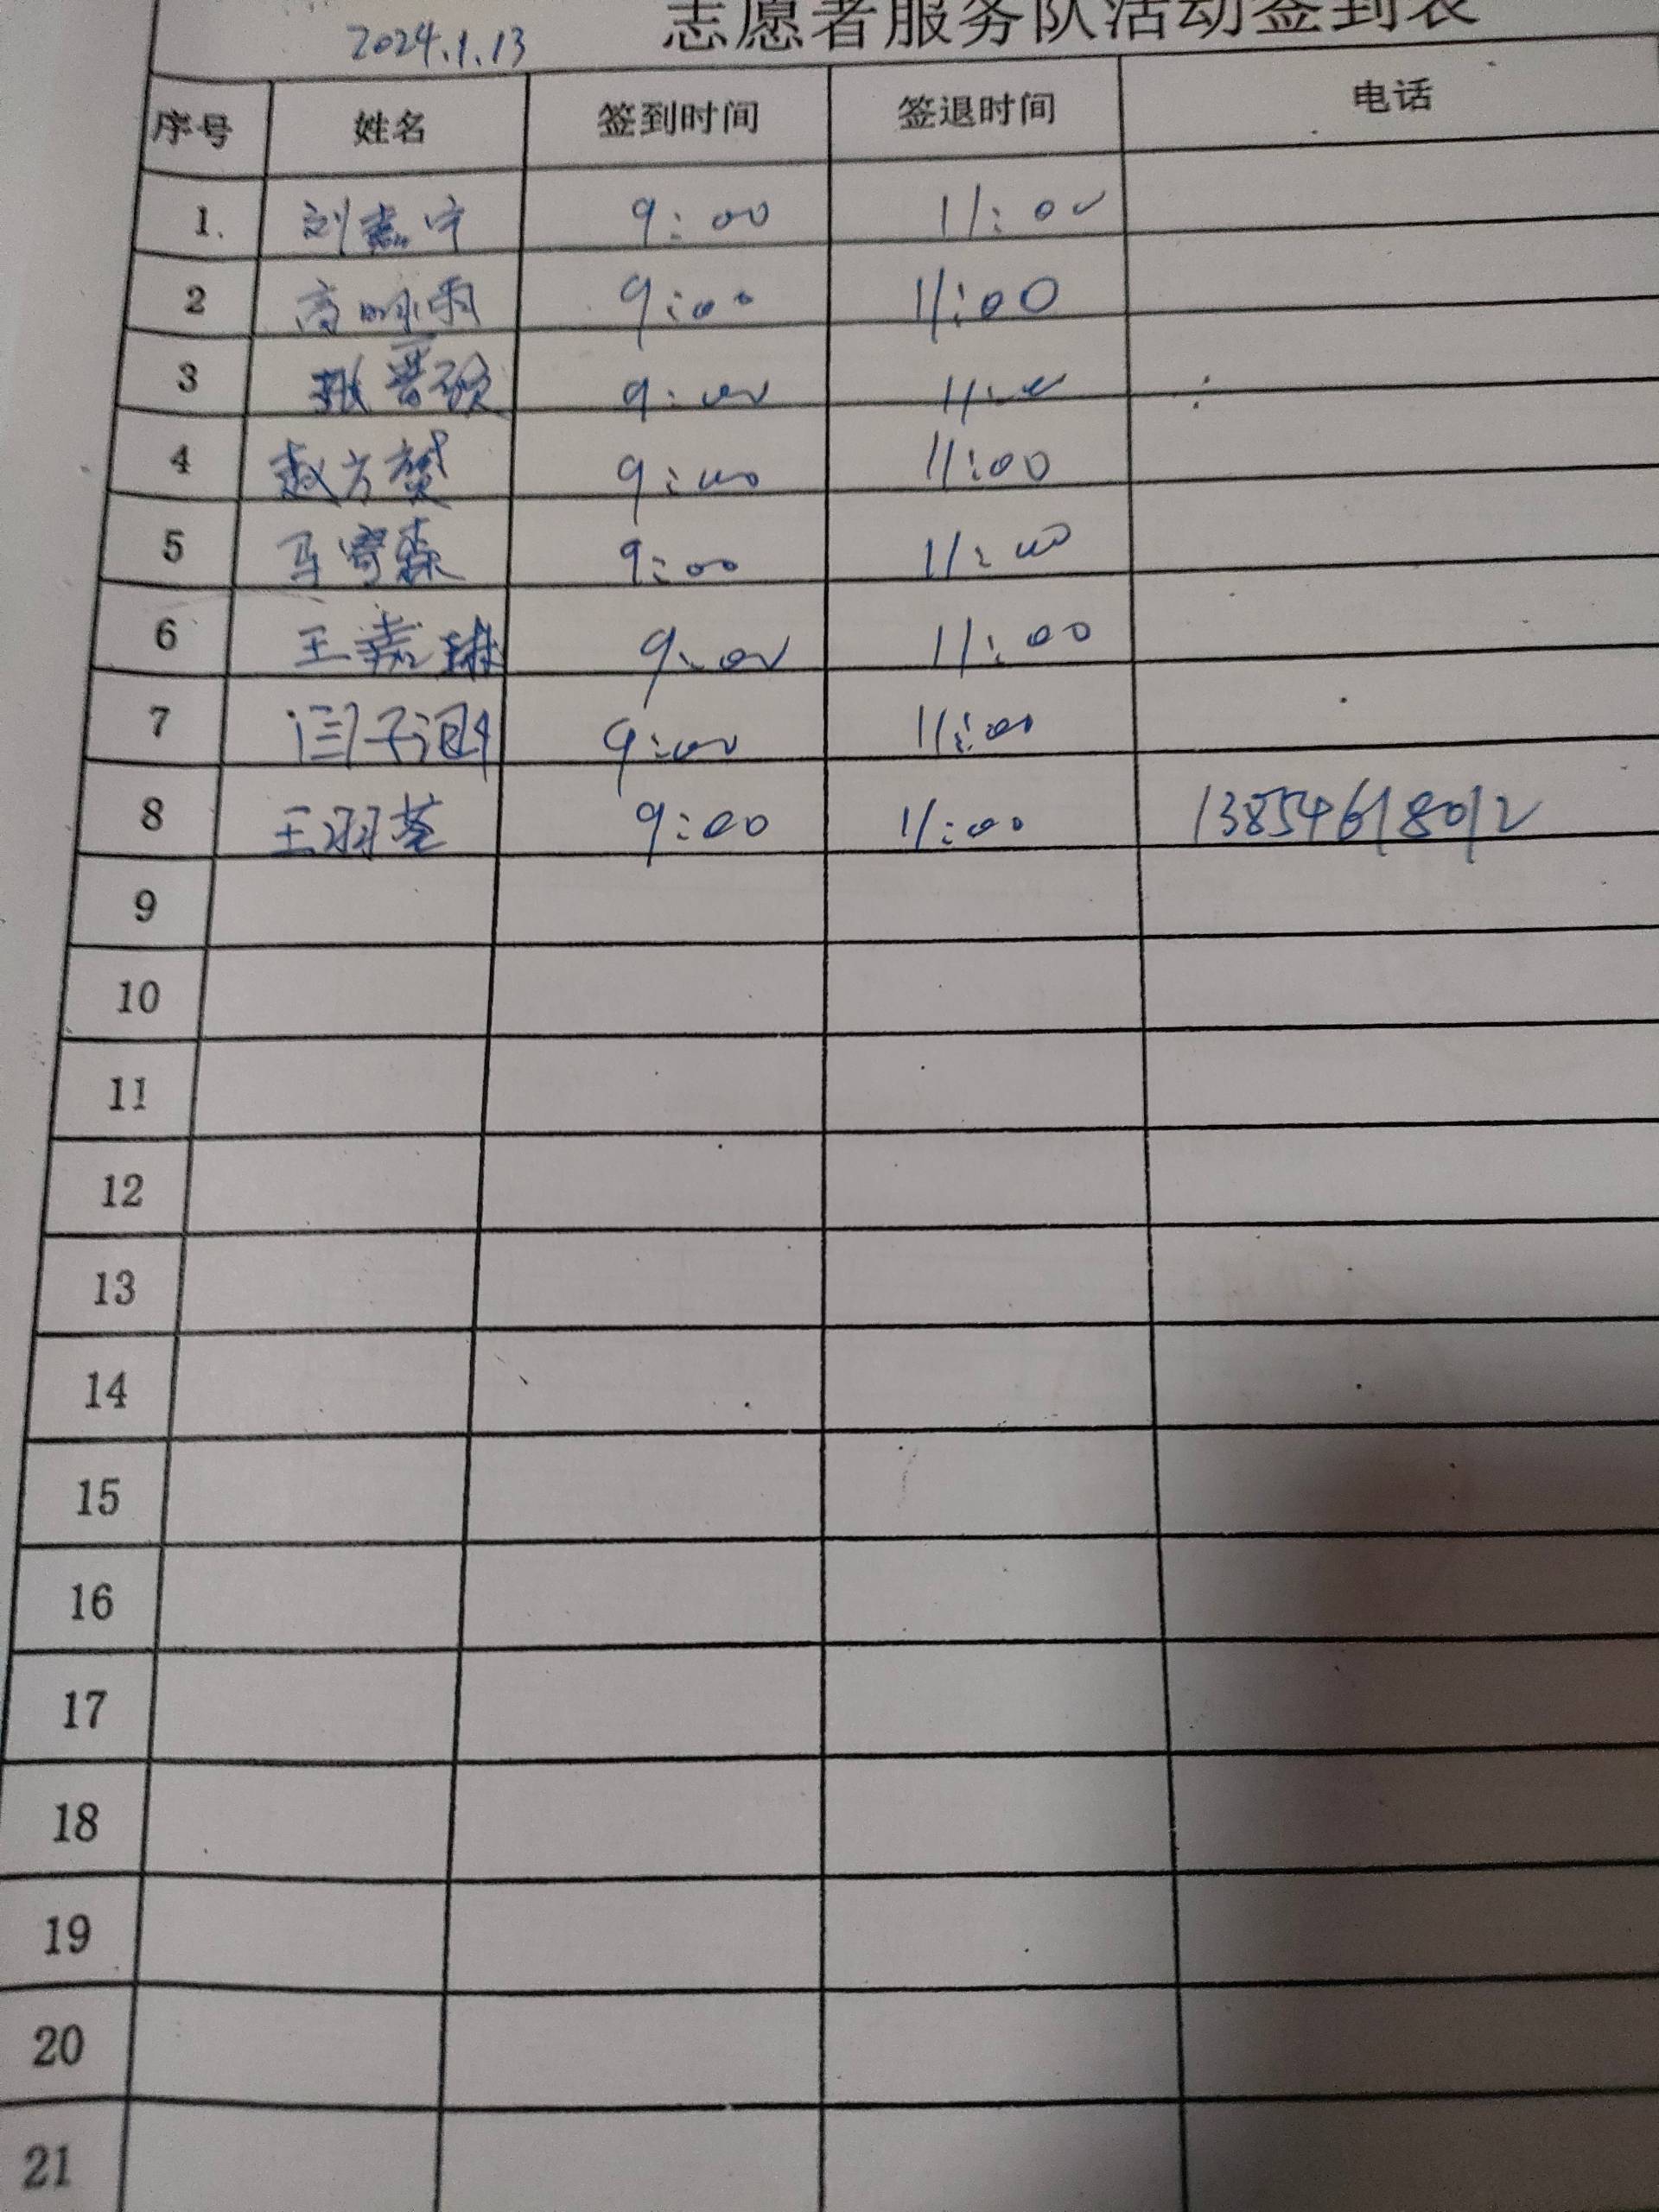 2024.1.13 志愿者服务队活动签到表
序号 姓名 签到时间 签退时间 电话
1. 刘嘉宁 9:00 11:00
2 高 雨 9:00 11:00
3 张晋硕 9:00 11:00
4 赵方赞 9:00 11:00
5 马骞森 9:00 11:00
6 王嘉琳 9:00 11:00
7 闫子涵 9:00 11:00
8 王羽茎 9:00 11:00 13854618012
9
10
11
12
13
14
15
16
17
18
19
20
21